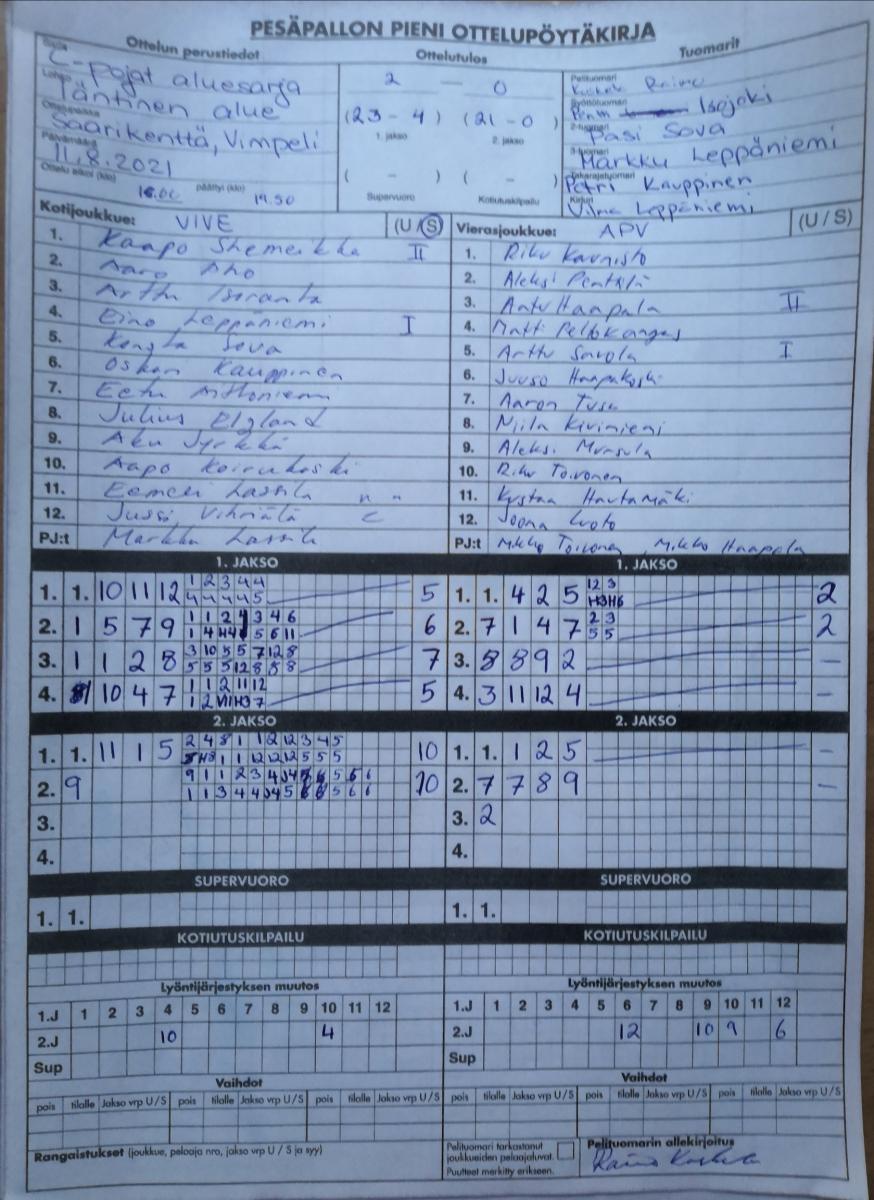 PESÄPALLON PIENI OTTELUPÖYTÄKIRJA
Ottelun perustiedot Ottelutulos Tuomarit
C-pojat aluesarja
Läntinen alue
Saarikenttä, Vimpeli
Päivämäärä 11.8.2021
Ottelu alkoi (klo) 18.00 päättyi (klo) 19.50
2 – 0
(23 - 4) (21 - 0)
1. jakso 2. jakso
( - ) ( - )
Supervuoro Kotiutuskilpailu
Pelituomari
Syöttötuomari Isojoki
2-tuomari Pasi Sova
3-tuomari Markku Leppäniemi
Takarajatuomari Petri Kauppinen
Kirjuri Vilma Leppäniemi
Kotijoukkue: VIVE (U/S)
1. Kaapo Shemeikka II
2. Aaro Aho
3. Arttu Isoranta
4. Eino Leppäniemi I
5. Sova
6. Oskari Kauppinen
7. Eetu Aittoniemi
8. Julius Elgland
9. Aku Jyrkkä
10. Aapo Koirukoski
11. Eemeli Lassila
12. Jussi Vihriälä C
PJ:t Markku Lassila
Vierasjoukkue: APV (U/S)
1. Riku Kaunisto
2. Aleksi Penttilä
3. Antu Haapala II
4. Matti Peltokangas
5. Arttu Savola I
6. Juuso Haapakoski
7. Aaron Tusa
8. Niila Kiviniemi
9. Aleksi Mursula
10. Riku Toivonen
11. Hautamäki
12. Joona Luoto
PJ:t Mikko Toivonen, Mikko Haapala
1. JAKSO 1. JAKSO
1. 1. 10 11 12 1 2 3 4 4 5
4 4 4 4 5
2. 1 5 7 9 6
3. 1 1 2 8 3 10 5 5 7 12 8 7
5 5 5 12 8 8 8
4. 10 4 7 1 1 2 11 12 5
1. 1. 4 2 5 12 3 2
2. 7 1 4 7 2 3 2
5 5
3. 8 8 9 2 –
4. 3 11 12 4 –
2. JAKSO 2. JAKSO
1. 1. 11 1 5 2 4 8 1 1 12 12 3 4 5 10
2. 9 10
3.
4.
1. 1. 1 2 5 –
2. 7 7 8 9 –
3. 2
4.
SUPERVUORO SUPERVUORO
1. 1. 1. 1.
KOTIUTUSKILPAILU KOTIUTUSKILPAILU
Lyöntijärjestyksen muutos Lyöntijärjestyksen muutos
1.J 1 2 3 4 5 6 7 8 9 10 11 12 1.J 1 2 3 4 5 6 7 8 9 10 11 12
2.J 10 4 2.J 12 10 9 6
Sup Sup
Vaihdot Vaihdot
pois tilalle Jakso vrp U/S pois tilalle Jakso vrp U/S pois tilalle Jakso vrp U/S pois tilalle Jakso vrp U/S pois tilalle Jakso vrp U/S pois tilalle Jakso vrp U/S
Rangaistukset (joukkue, pelaaja nro, jakso vrp U / S ja syy)
Pelituomari tarkastanut
joukkueiden pelaajaluvat.
Puutteet merkitty erikseen.
Pelituomarin allekirjoitus